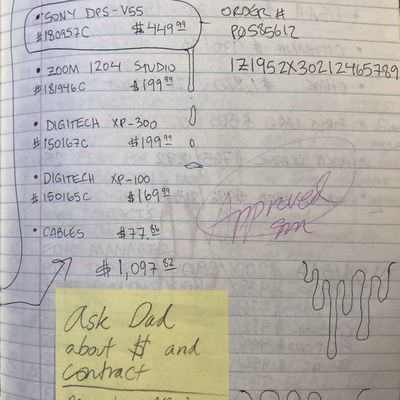 • SONY DPS-V55
#180957C $449.99
• ZOOM 1204 STUDIO
#181946C $199.99
• DIGITECH XP-300
#150167C $199.99
• DIGITECH XP-100
#150165C $169.99
• CABLES $77.86
$1,097.82
ORDER #
P0585612
1Z1952X30212465789
Approved
Ask Dad
about $ and
contract